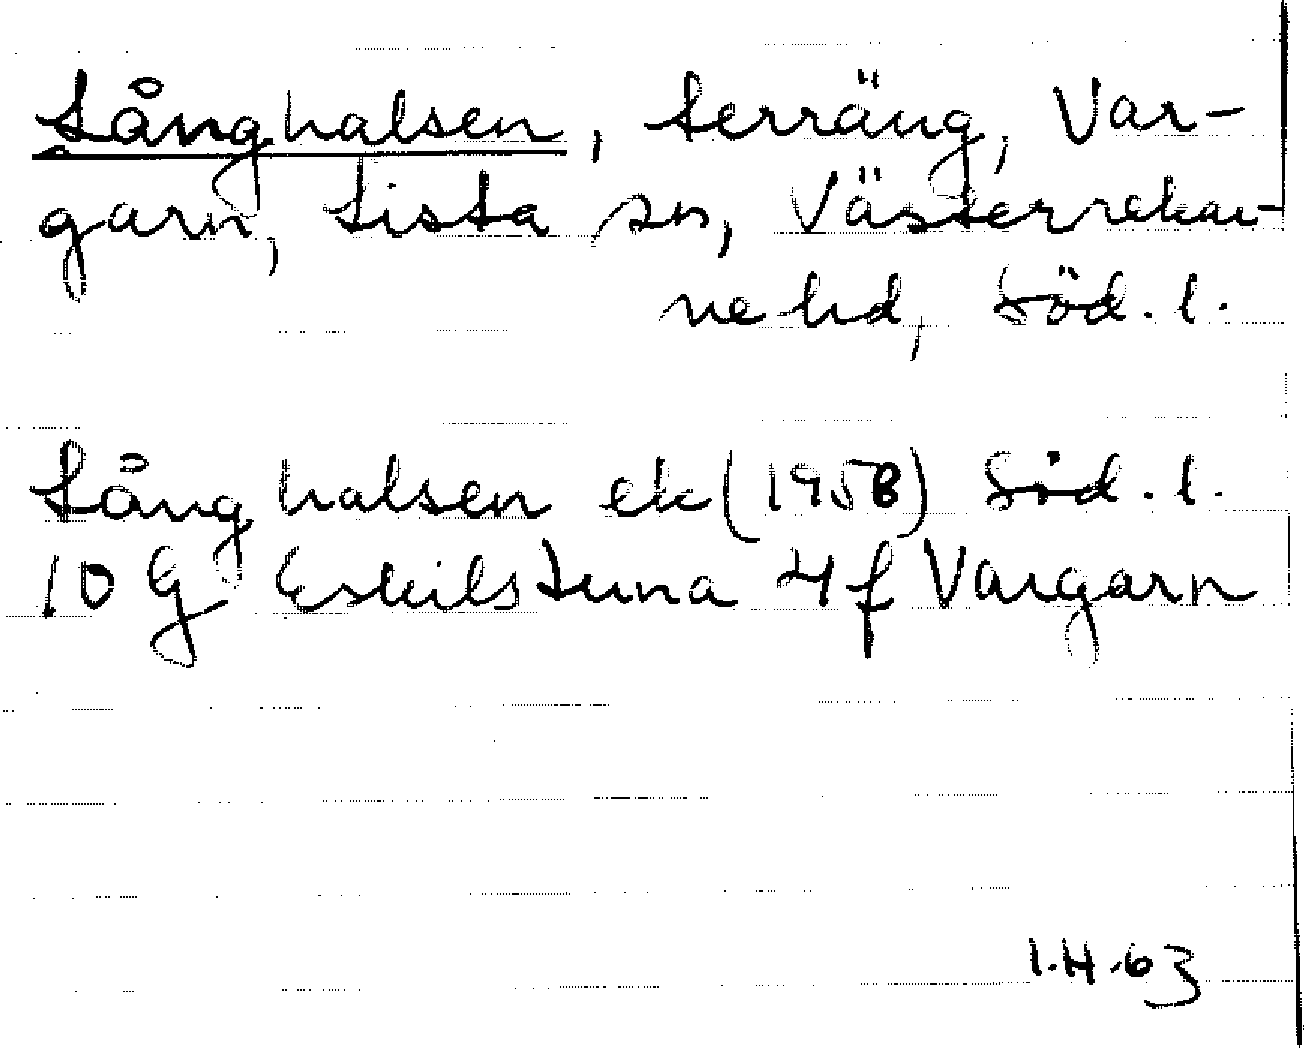 Långhalsen, terräng, Var-
garn, Lista sn, Västerrekar-
ne hd, Söd. l.
Långhalsen ek (1958) Söd. l.
10 G Eskilstuna 4 f Vargarn
I.H.63